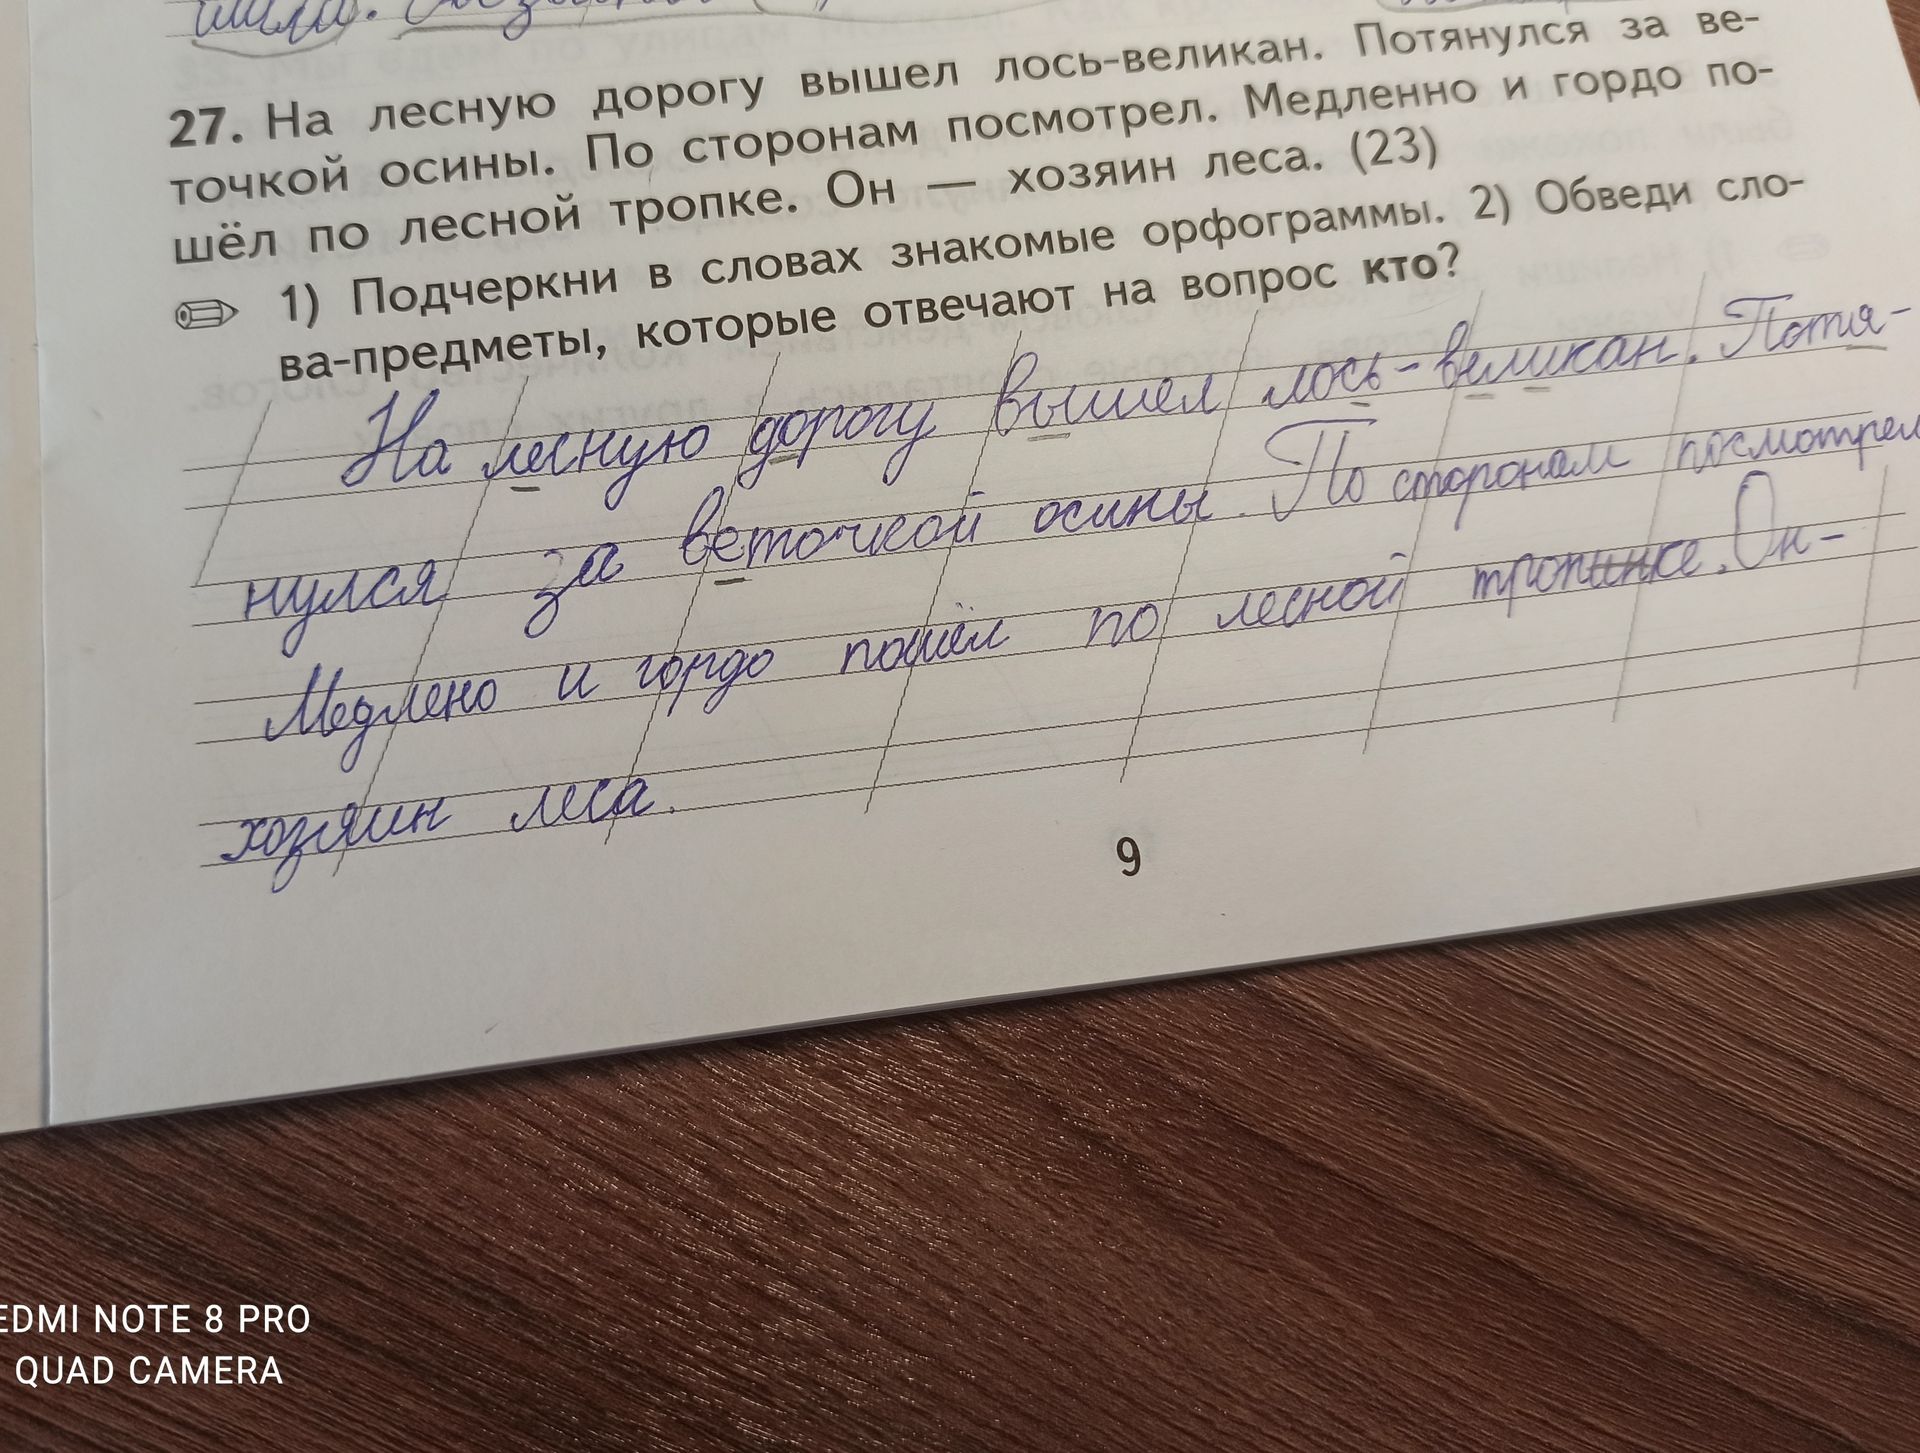 27. На лесную дорогу вышел лось-великан. Потянулся за ве-
точкой осины. По сторонам посмотрел. Медленно и гордо по-
шёл по лесной тропке. Он — хозяин леса. (23)
1) Подчеркни в словах знакомые орфограммы. 2) Обведи сло-
ва-предметы, которые отвечают на вопрос кто?
На лесную дорогу вышел лось-великан. Потя-
нулся за веточкой осины. По сторонам посмотрел
Медлено и гордо пошёл по лесной тропинке. Он-
хозяин леса.
9
EDMI NOTE 8 PRO
QUAD CAMERA